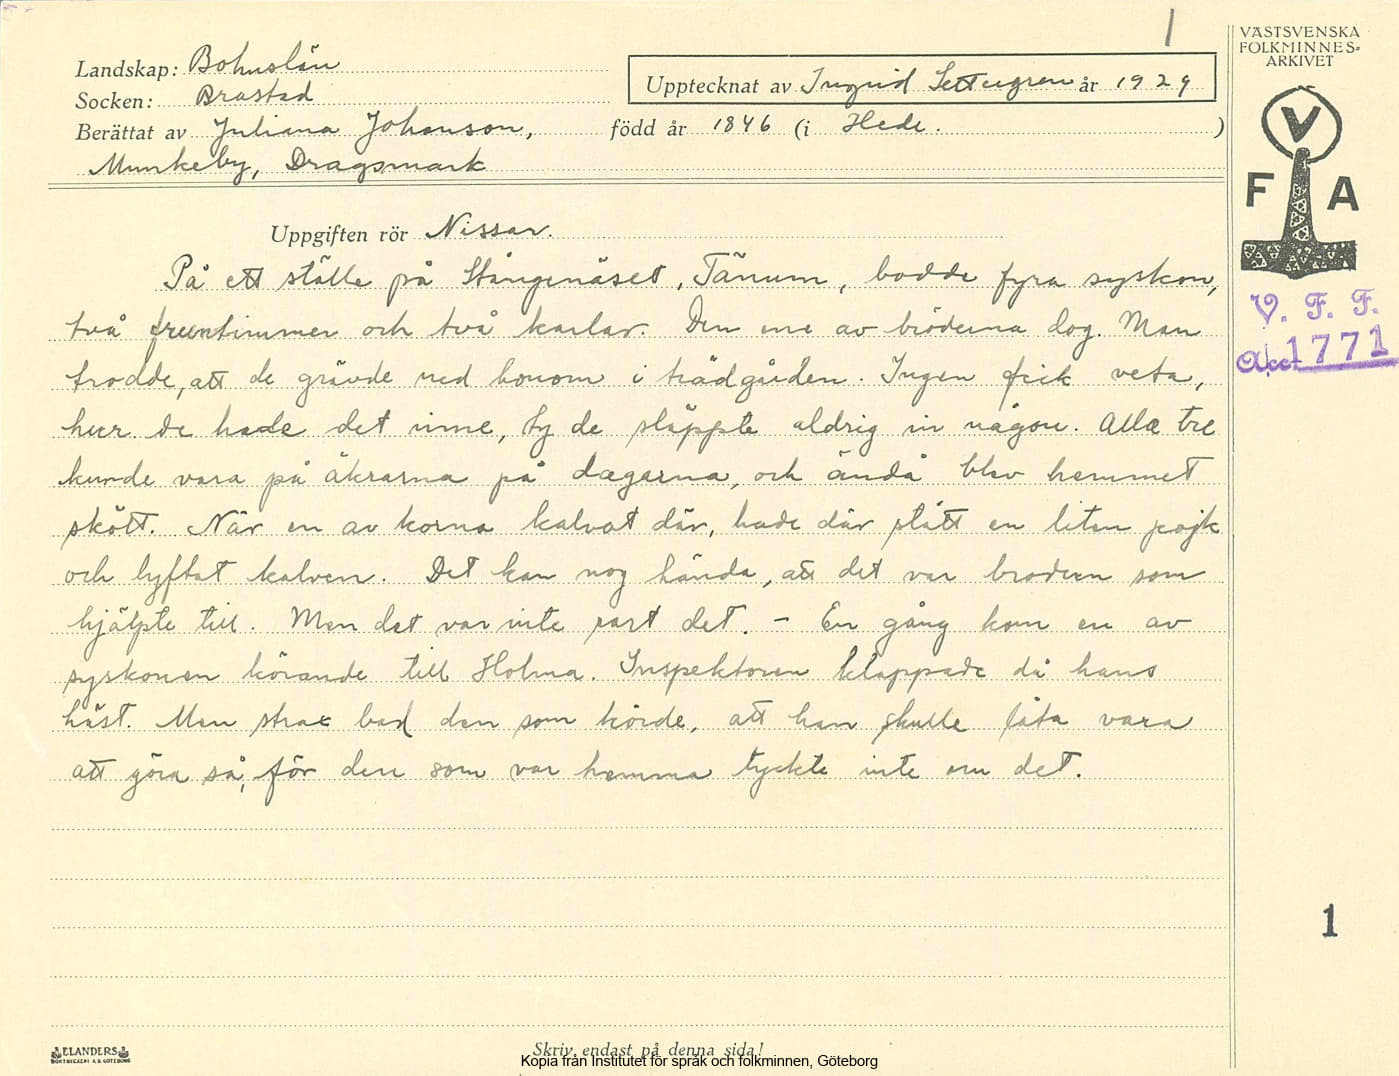 1
VÄSTSVENSKA
FOLKMINNES-
ARKIVET
V
F A
V. F. F.
Acc 1771
Landskap: Bohuslän
Socken: Brastad
Upptecknat av Ingrid Settergren år 1929
Berättat av Juliana Johanson, född år 1846 (i Hede. )
Munkeby, Dragsmark
Uppgiften rör Nissar.
På ett ställe på Stångenäset, Tånum, bodde fyra syskon,
två fruentimmer och två karlar. Den ene av bröderna dog. Man
trodde, att de grävde ned honom i trädgården. Ingen fick veta,
hur de hade det inne, ty de släppte aldrig in någon. Alla tre
kunde vara på åkrarna på dagarna, och ändå blev hemmet
skött. När en av korna kalvat där, hade där stått en liten pojk
och lyftat kalven. Det kan nog hända, att det var brodern som
hjälpte till. Men det var inte rart det. - En gång kom en av
syskonen körande till Holma. Inspektoren klappade då hans
häst. Men strax bad den som körde, att han skulle låta vara
att göra så, för den som var hemma tyckte inte om det.
1
ELANDERS
BOKTRYCKERI A.B. GÖTEBORG
Skriv endast på denna sida!
Kopia från Institutet för språk och folkminnen, Göteborg